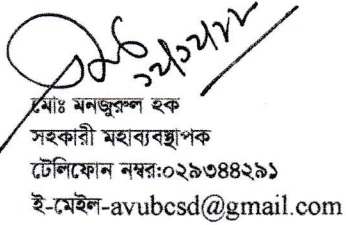 মোঃ মনজুরুল হক
সহকারী মহাব্যবস্থাপক
টেলিফোন নম্বর:০২৯৩৪৪২৯১
ই-মেইল-avubcsd@gmail.com